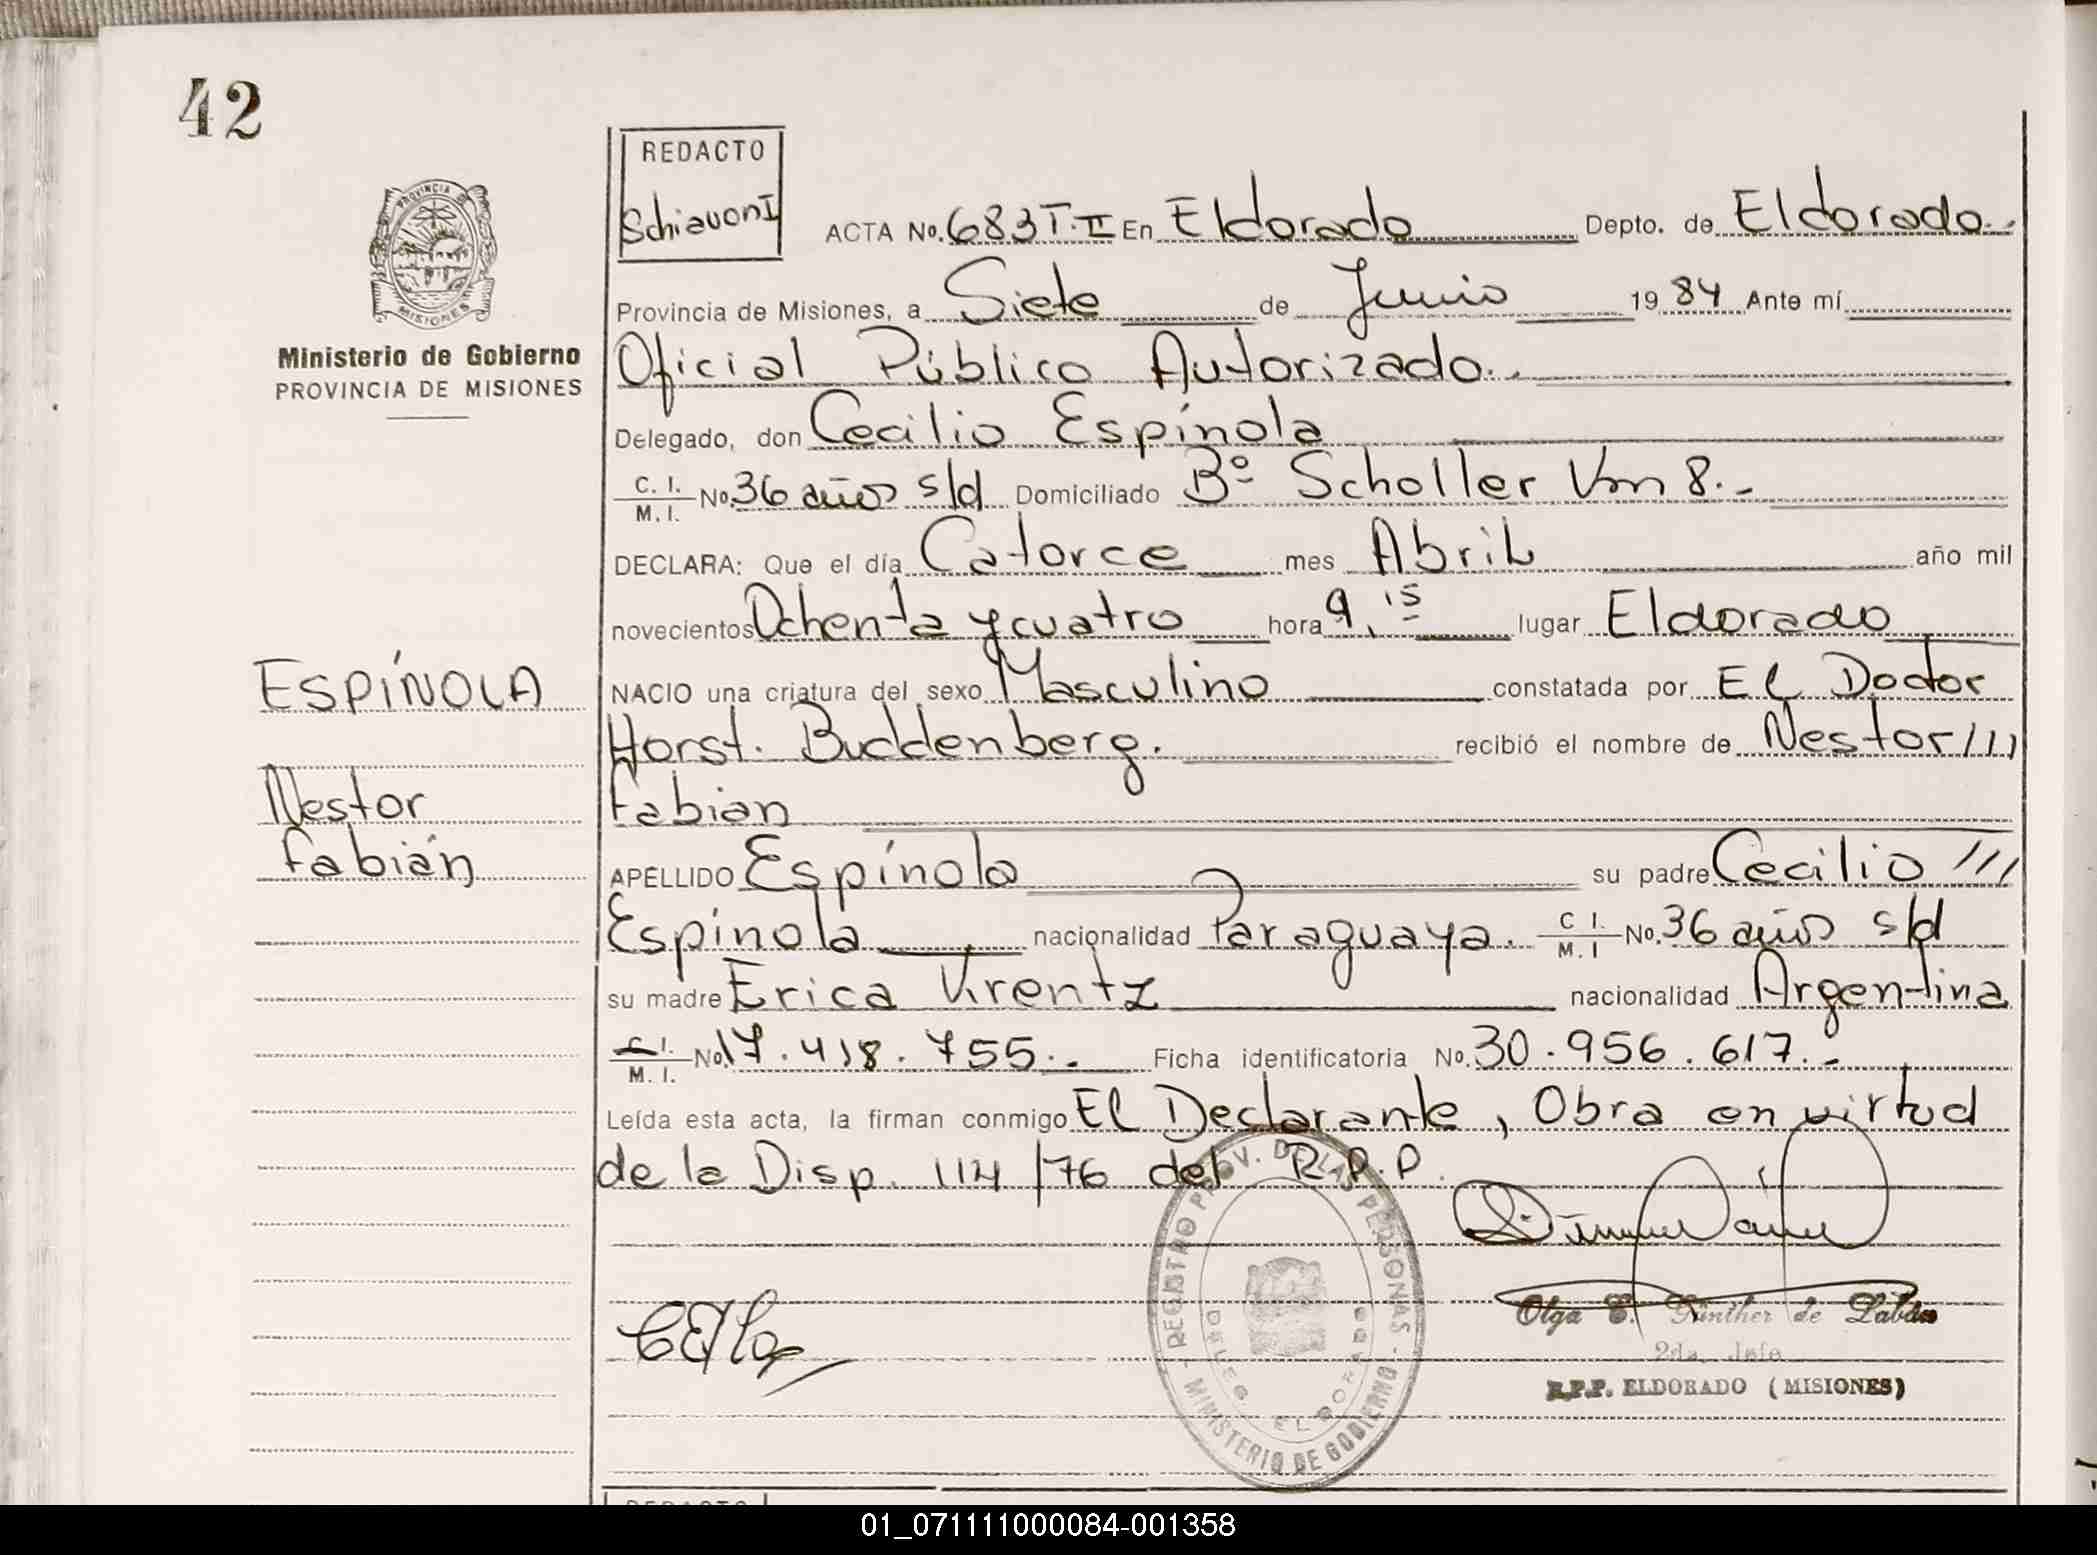 42
REDACTO
Schiavoni
ACTA No. 683 T. II En Eldorado Depto. de Eldorado.
Provincia de Misiones, a Siete de Junio 19 84 Ante mí
Oficial Público Autorizado.
Delegado, don Cecilio Espínola
C. I. M. I. No. 36 años s/d Domiciliado Bº Scholler Km 8.-
DECLARA: Que el día Catorce mes Abril año mil
novecientos Ochenta y cuatro hora 9,15 lugar Eldorado
NACIO una criatura del sexo Masculino constatada por El Doctor
Horst. Buddenberg. recibió el nombre de Nestor ///
Fabian
APELLIDO Espínola su padre Cecilio ///
Espínola nacionalidad Paraguaya. C I. M. I No. 36 años s/d
su madre Erica Krentz nacionalidad Argentina
C. I. M. I. No. 17.418.755.- Ficha identificatoria No. 30.956.617.-
Leída esta acta, la firman conmigo El Declarante, Obra en virtud
de la Disp. 114/76 del R.P.P.
PROVINCIA DE MISIONES
Ministerio de Gobierno
PROVINCIA DE MISIONES
ESPÍNOLA
Nestor
Fabián
REGISTRO PROV. DE LAS PERSONAS - MINISTERIO DE GOBIERNO -
DELEG. ELDORADO
Olga E. Günther de
2da. Jefe
R.P.P. ELDORADO (MISIONES)
REDACTO
01_071111000084-001358